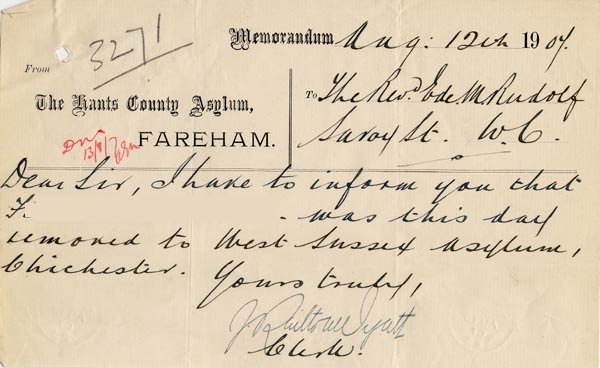 3271
Memorandum Aug: 12th 1907.
From
The Hants County Asylum,
FAREHAM.
13/8/7
To The Revd. E de M Rudolf
Savoy St. W.C.
Dear Sir, I have to inform you that
F. - was this day
removed to West Sussex Asylum,
Chichester. Yours truly,
Wyatt
Clerk.